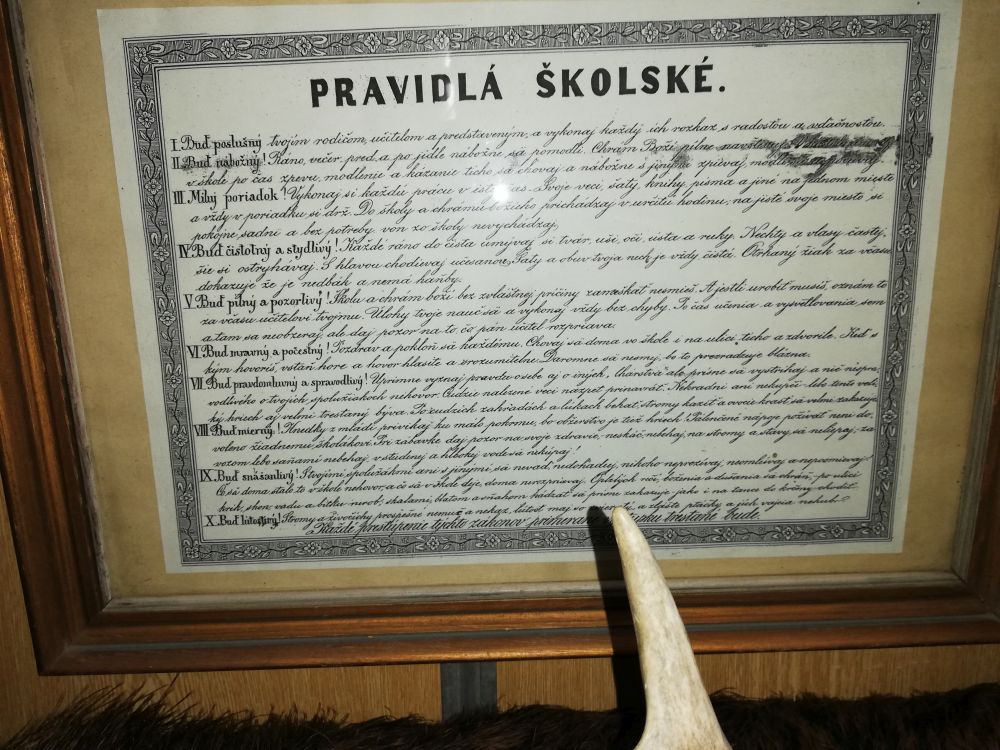 PRAVIDLÁ ŠKOLSKÉ.
I. Buď poslušný tvojim rodičom, učitelom a predstaveným, a vykonaj každý ich rozkaz s radosťou a vďačnosťou.
II. Buď nábožný! Ráno, večer, pred a po jidle nábožne sa pomodli. Chrám Boží pilne
v škole po čas zpevu, modlenie a kázanie ticho sa chovaj a nábožne s jinými zpívaj,
III. Milуj poriadok! Vykonaj si každú prácu v istý čas. Svoje veci, šaty, knihy, písma a jiné na jednom mieste
a vždy v poriadku si drž. Do školy a chrámu božieho prichádzaj v určitú hodinu, na jisté svoje miesto si
pokojne sadni a bez potreby von zo školy nevychádzaj.
IV. Buď čistotný a stydlivý! Každé ráno do čista umývaj si tvár, uši, oči, ústa a ruky. Nechty a vlasy častej-
šie si ostryhávaj. S hlavou chodievaj učesanou. Šaty a obuv tvoja nech je vždy čistá. Otrhaný žiak za včasu
dokazuje že je nedbák a nemá haňby.
V. Buď pilný a pozorlivý! Školu a chrám boží bez zvláštnej príčiny zameškať nesmieš. A jestli urobiť musíš, oznám to
za včasu učitelovi tvojmu. Úlohy tvoje nauč sa a vykonaj vždy bez chyby. Po čas učenia a vysvetlovania sem
a tam sa neobzeraj, ale daj pozor na to, čo pán učitel rozpriava.
VI. Buď mravný a počestný! Pozdrav a pokloň sa každému. Chovaj sa doma vo škole i na ulici ticho a zdvorile. Keď s
kým hovoríš, vstaň hore a hovor hlasite a srozumitelne. Daromne sa nesmej, bo to prezradzuje blázna.
VII. Buď pravdomluvný a spravodlivý! Úprimne vyznaj pravdu o sebe aj o iných. Lhárstva ale prísne sa vystríhaj a nič nepra-
vodlivého o tvojich spolužiakoch nehovor. Cudzie nalezené veci nazpet prinavráť. Nekradni ani nekupčí lebo tento vel-
ký hriech aj velmi trestaný býva. Po cudzích zahradách a lúkach behať, stromy kaziť a ovocie krásť sa velmi zakazuje.
VIII. Buď mierny! Hneďky z mladi privikaj ku málo pokrmu, bo obžerstvo je tiež hriech. Pálenčené nápoje požívať není do-
voleno žiadnemu školákovi. Pri zábavke daj pozor na svoje zdravie, neskáč, nebehaj, na stromy a stavy sa nelepaj, za
vozom lebo saňami nebehaj, v studenej a hlbokej vode sa nekúpaj!
IX. Buď snášanlivý! S tvojimi spolužákmi ani s jinými sa nevaď, nedohaduj, nikoho neprozívaj, neomlúvaj a neposmievaj!
Čo sa doma stalo to v škole nehovor, a čo sa v škole deje, doma nevzprávaj.
krik, shon, vadu a bitku nerob, skalami, blatom a sňahom hádzať sa prísne zakazuje, jako i na tance do krčmy chodiť.
X. Buď lutostivý! Stromy a živočíchy prospešné nemuč a nekaz, lútosť maj so a zlapšie ptáčky a jich vajcia nehub!
Každé prestúpenie týchto zákonov primerane trestané bude.